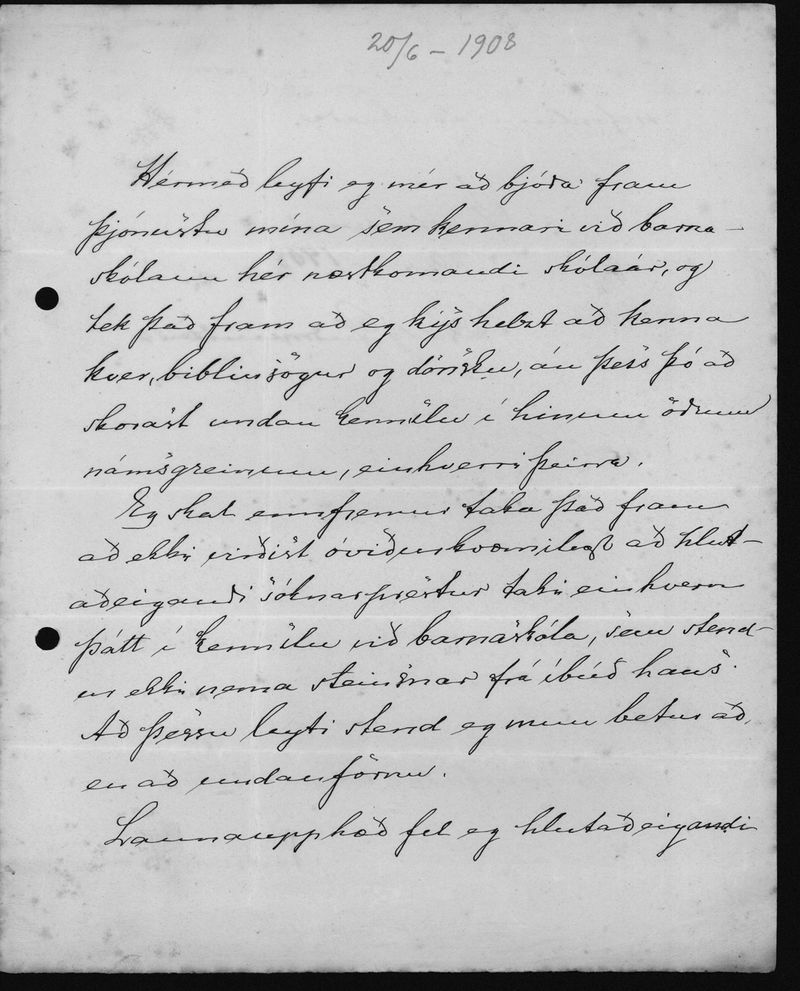 20/6 – 1908
Hérmeð leyfi eg mér að bjóða fram
þjónustu mína sem kennari við barna-
skólann hér næstkomandi skólaár, og
tek það fram að eg kýs helzt að kenna
kver, biblíusögur og dönsku, án þess þó að
skorast undan kennslu í hinum öðrum
námsgreinum, einhverri þeirra.
Eg skal ennfremur taka það fram
að ekki virðist óviðurkvæmilegt að hlut-
aðeigandi sóknarprestur taki einhvern
þátt í kennslu við barnaskóla, sem stend-
ur ekki nema steinsnar frá íbúð hans.
Að þessu leyti stend eg mun betur að,
en að undanförnu.
Launaupphæð fel eg hlutaðeigandi